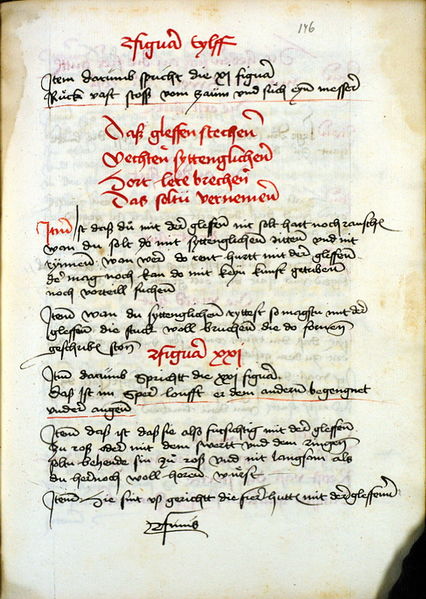 146
Figura xylff
Jtem darumb spricht die xi figura
Rück vast stoß vom zaum vnd süch syn messer
Daß gleffen stechen
Vechten syttenglichen
Dort lere brechen
Das soltu vernemen
Jtem Jst daß du mit der glefen nit solt hart noch rausche
wan du solt do mit syttenglichen ritten vnd nit
rynnen wan wer do rent hurtt mit der gleffen
der mag noch kan do mit keyn kunst getriben
noch vorteill suchen
Jtem wan du syttenglichen ryttest so magstu mit der
gleffen die stuck woll bruchen die do fornen
geschriben ston
Figura xxi
Jtem darumb Spricht die xxi figura
Daß ist im Sper loufft er dem andern begengnet
vnder augen
Jtem daß ist daß sie alß fursichtig mit der gleffen
zu roß oder mit dem swertt vnd dem ringen
soltu behende sin zu roß vnd nit langsam als
du hernoch woll horen wurst
Jtem Hie sint vß gerichtt die fier hutten mit der gleffenn
Finis